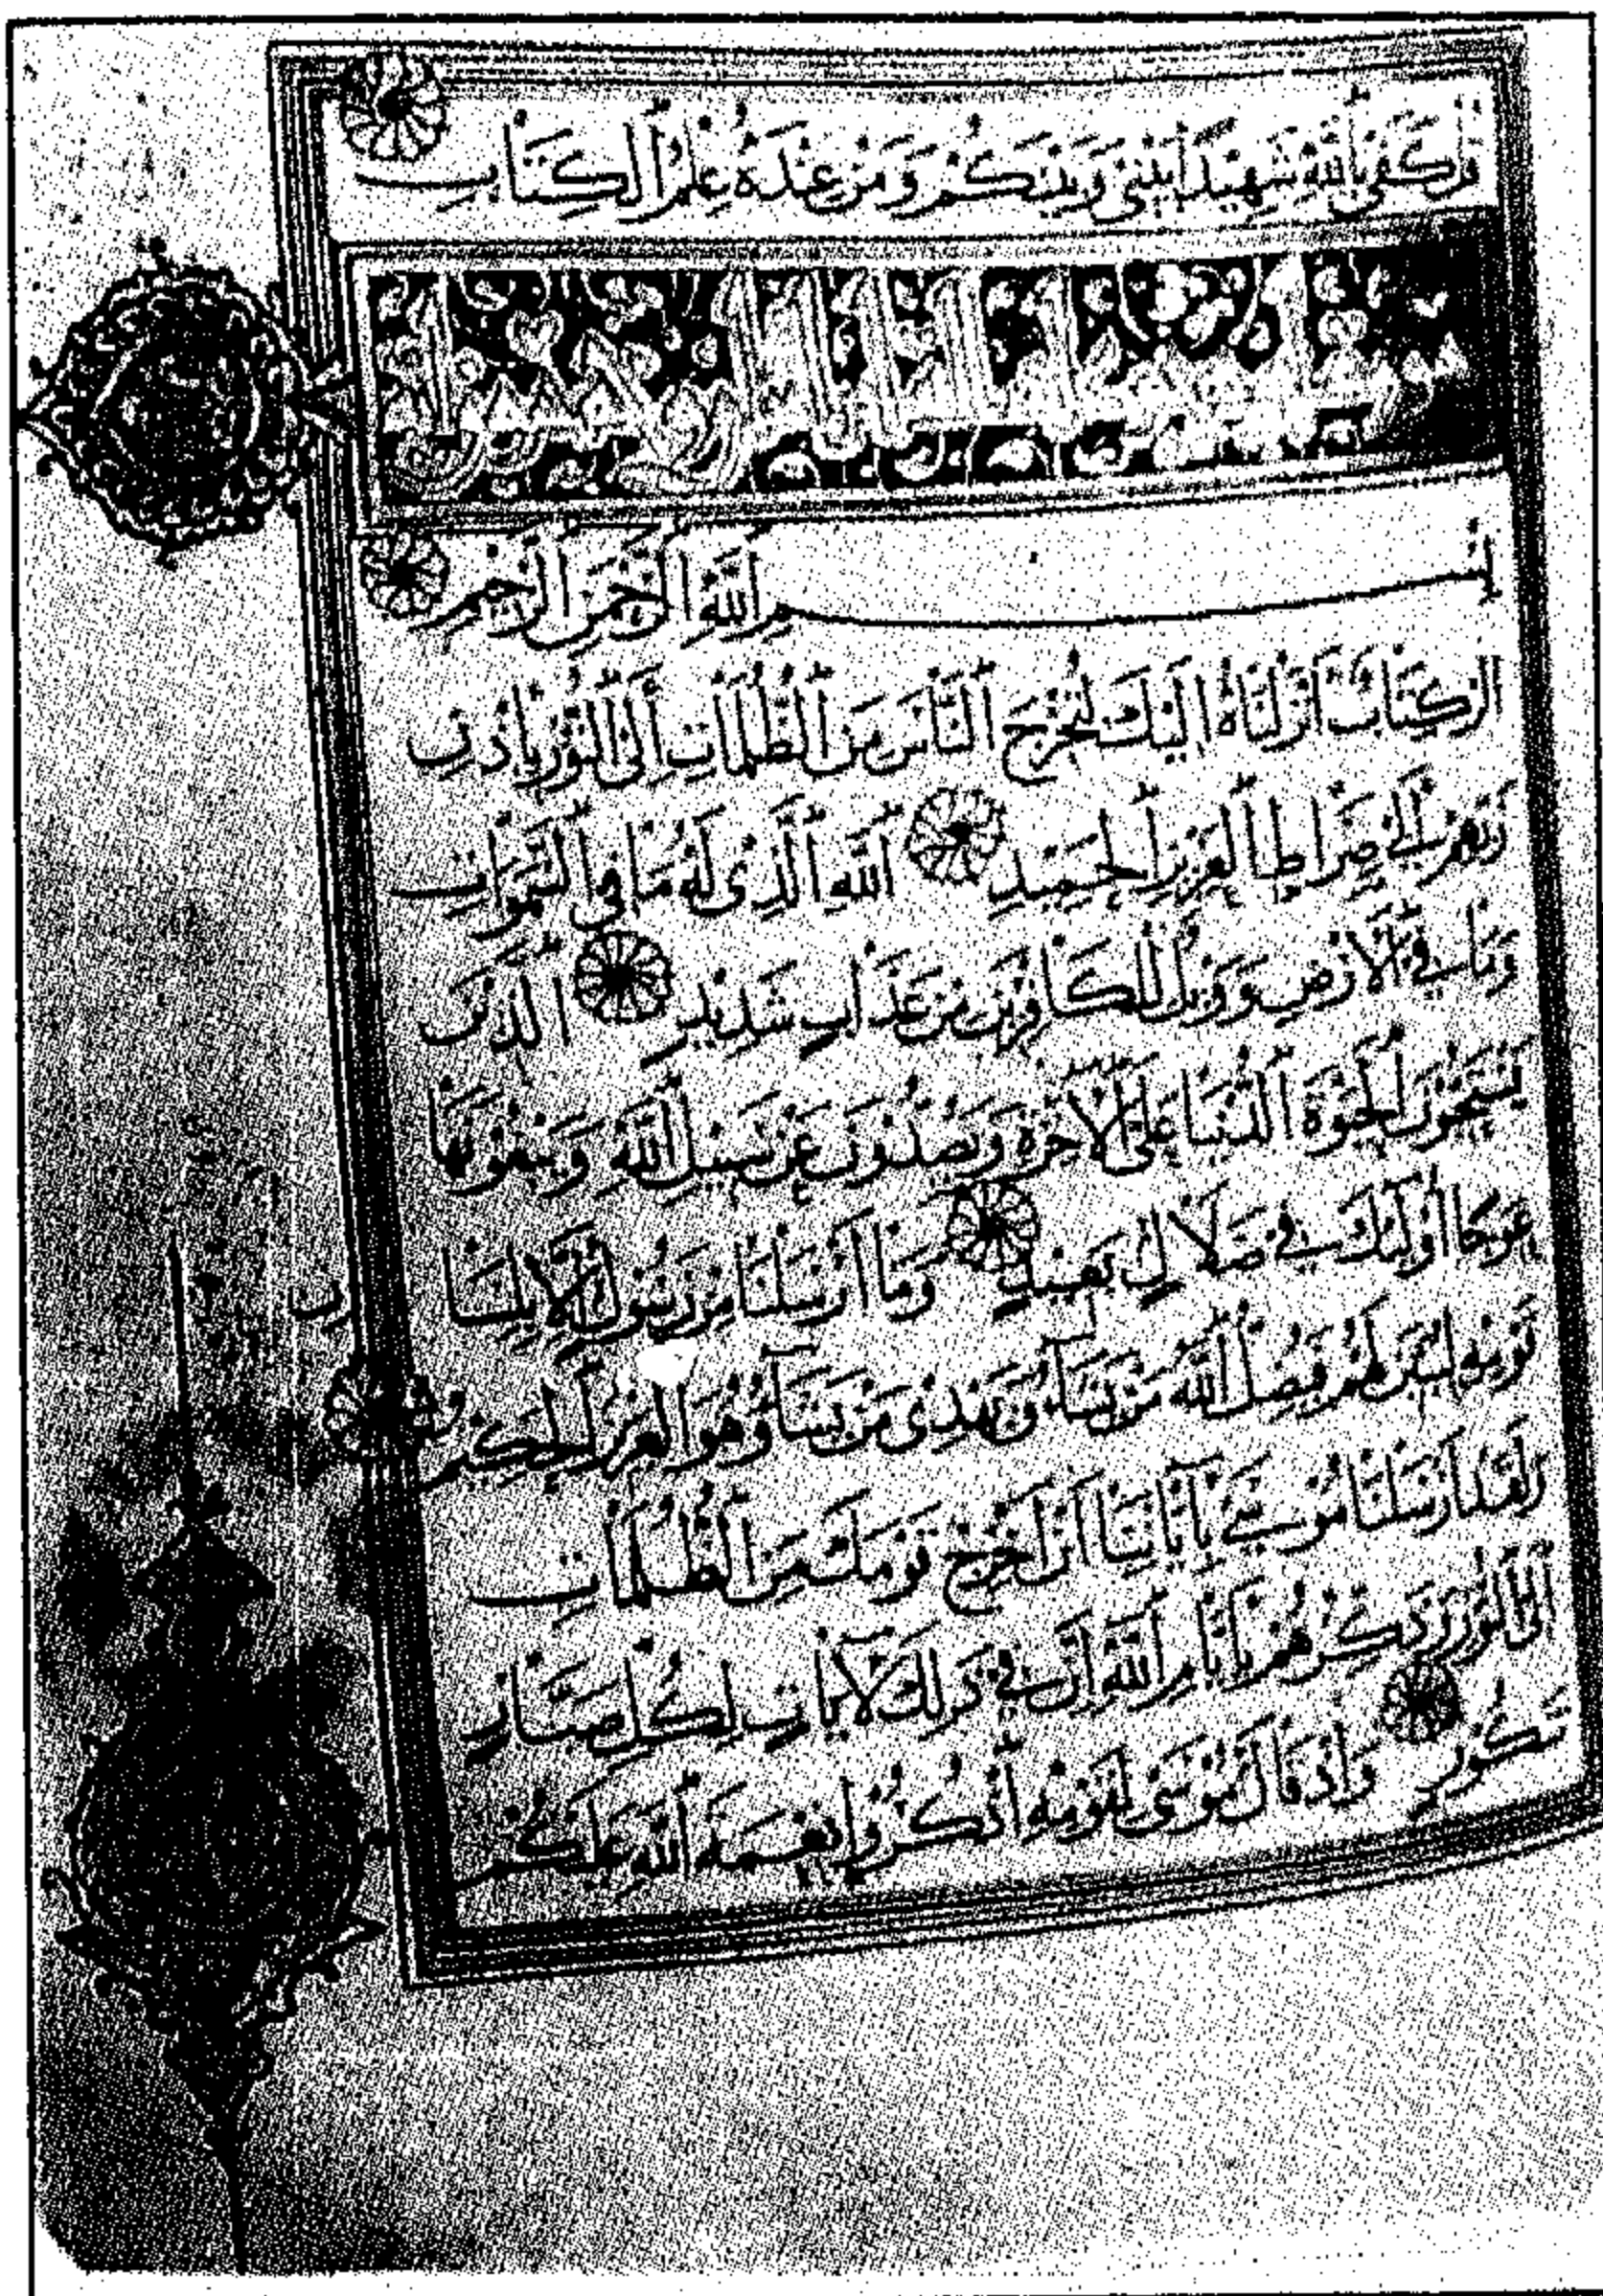 قُلْ كَفَىٰ بِاللَّهِ شَهِيدًا بَيْنِي وَبَيْنَكُمْ وَمَنْ عِنْدَهُ عِلْمُ الْكِتَابِ
بِسْمِ اللَّهِ الرَّحْمَنِ الرَّحِيمِ
الر كِتَابٌ أَنْزَلْنَاهُ إِلَيْكَ لِتُخْرِجَ النَّاسَ مِنَ الظُّلُمَاتِ إِلَى النُّورِ بِإِذْنِ
رَبِّهِمْ إِلَىٰ صِرَاطِ الْعَزِيزِ الْحَمِيدِ اللَّهِ الَّذِي لَهُ مَا فِي السَّمَوَاتِ
وَمَا فِي الْأَرْضِ وَوَيْلٌ لِلْكَافِرِينَ مِنْ عَذَابٍ شَدِيدٍ الَّذِينَ
يَسْتَحِبُّونَ الْحَيَوةَ الدُّنْيَا عَلَى الْآخِرَةِ وَيَصُدُّونَ عَنْ سَبِيلِ اللَّهِ وَيَبْغُونَهَا
عِوَجًا أُولَٰئِكَ فِي ضَلَالٍ بَعِيدٍ وَمَا أَرْسَلْنَا مِنْ رَسُولٍ إِلَّا بِلِسَانِ
قَوْمِهِ لِيُبَيِّنَ لَهُمْ فَيُضِلُّ اللَّهُ مَنْ يَشَاءُ وَيَهْدِي مَنْ يَشَاءُ وَهُوَ الْعَزِيزُ الْحَكِيمُ
وَلَقَدْ أَرْسَلْنَا مُوسَىٰ بِآيَاتِنَا أَنْ أَخْرِجْ قَوْمَكَ مِنَ الظُّلُمَاتِ
إِلَى النُّورِ وَذَكِّرْهُمْ بِأَيَّامِ اللَّهِ إِنَّ فِي ذَٰلِكَ لَآيَاتٍ لِكُلِّ صَبَّارٍ
شَكُورٍ وَإِذْ قَالَ مُوسَىٰ لِقَوْمِهِ اذْكُرُوا نِعْمَةَ اللَّهِ عَلَيْكُمْ